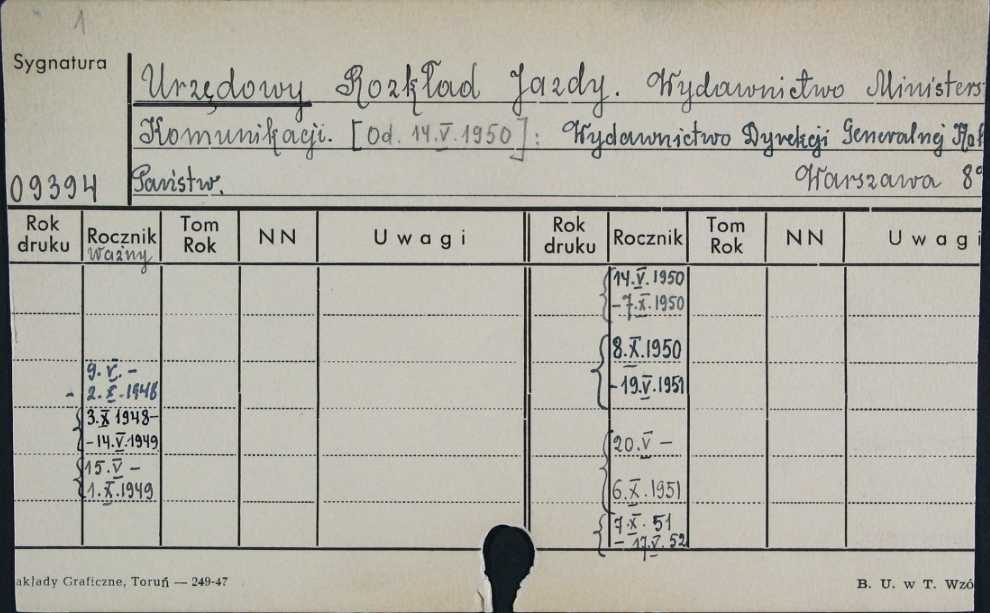 1
Sygnatura
Urzędowy Rozkład Jazdy. Wydawnictwo Ministers
Komunikacji. [Od. 14.V.1950]: Wydawnictwo Dyrekcji Generalnej Kol
09394 Państw. Warszawa 8°
Rok druku Rocznik Ważny Tom Rok NN Uwagi Rok druku Rocznik Tom Rok NN Uwagi
14.V.1950
-7.X.1950
8.X.1950
9.V. -
- 2.X.1948
-19.V.1951
3.X 1948-
-14.V.1949
15.V -
1.X.1949
20.V -
6.X.1951
7.X. 51
- 17.V. 52
akłady Graficzne, Toruń — 249-47 B. U. w T. Wzó